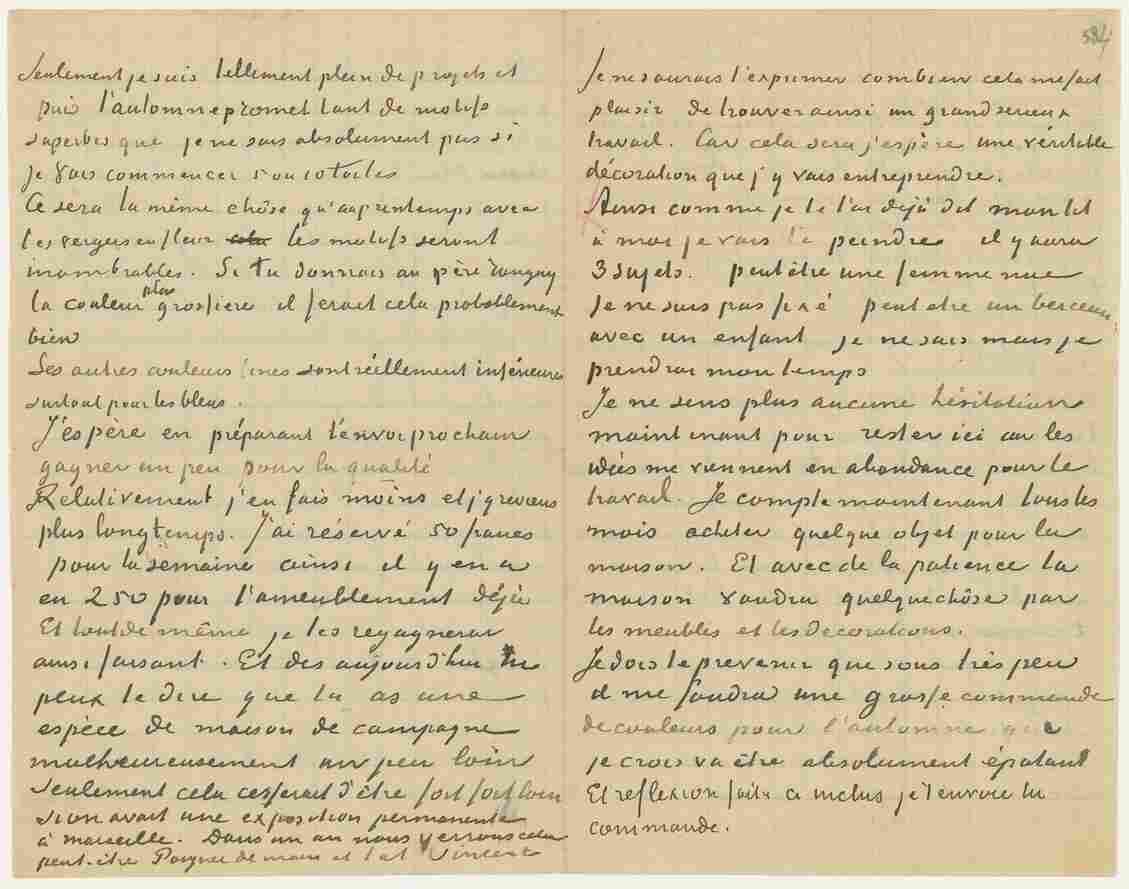 Seulement je suis tellement plein de projets et
puis l'automne promet tant de motifs
superbes que je ne sais absolument pas si
je vais commencer 5 ou 10 toiles
Ce sera la même chôse qu'au printemps avec
les vergers en fleur les motifs seront
innombrables. Si tu donnais au père Tanguy
la couleur plus grossiere il ferait cela probablement
bien
Ses autres couleurs fines sont réellement inférieures
surtout pour les bleus.
J'espère en préparant l'envoi prochain
gagner un peu pour la qualité
Relativement j'en fais moins et j'y reviens
plus longtemps. J'ai réservé 50 francs
pour la semaine ainsi il y en a
en 250 pour l'ameublement déjà
Et tout de même je les regagnerai
ainsi faisant. Et des aujourd'hui tu
peux te dire que tu as une
espèce de maison de campagne
malheureusement un peu loin
Seulement cela cesserait d'être fort fort loin
si on avait une exposition permanente
à Marseille. Dans un an nous verrons cela
peut-être Poignee de main et t. à t. Vincent
Je ne saurais t'exprimer combien cela me fait
plaisir de trouver ainsi un grand serieux
travail. Car cela sera j'espère une véritable
décoration que j'y vais entreprendre.
Ainsi comme je te l'ai déjà dit mon lit
à moi je vais le peindre il y aura
3 sujets. peut être une femme nue
je ne suis pas fixé peut etre un berceau
avec un enfant je ne sais mais je
prendrai mon temps
Je ne sens plus aucune hésitation
maintenant pour rester ici car les
idées me viennent en abondance pour le
travail. Je compte maintenant tous les
mois acheter quelque objet pour la
maison. Et avec de la patience la
maison vaudra quelque chôse par
les meubles et les decorations.
Je dois te prevenir que sous très peu
il me faudra une grosse commande
de couleurs pour l'automne que
je crois va être absolument épatant
Et reflexion faite ci inclus je t'envoie la
commande.